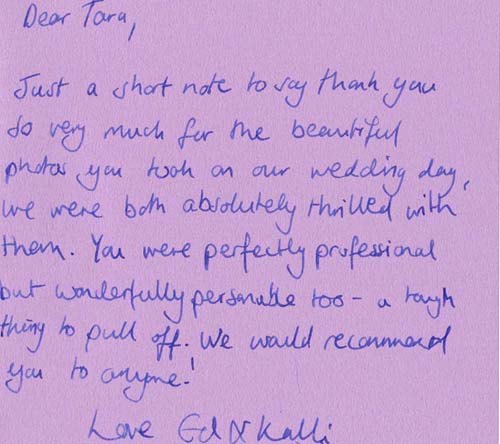 Dear Tara,
Just a short note to say thank you
so very much for the beautiful
photos you took on our wedding day,
we were both absolutely thrilled with
them. You were perfectly professional
but wonderfully personable too - a tough
thing to pull off. We would recommend
you to anyone!
Love Ed & Kalli